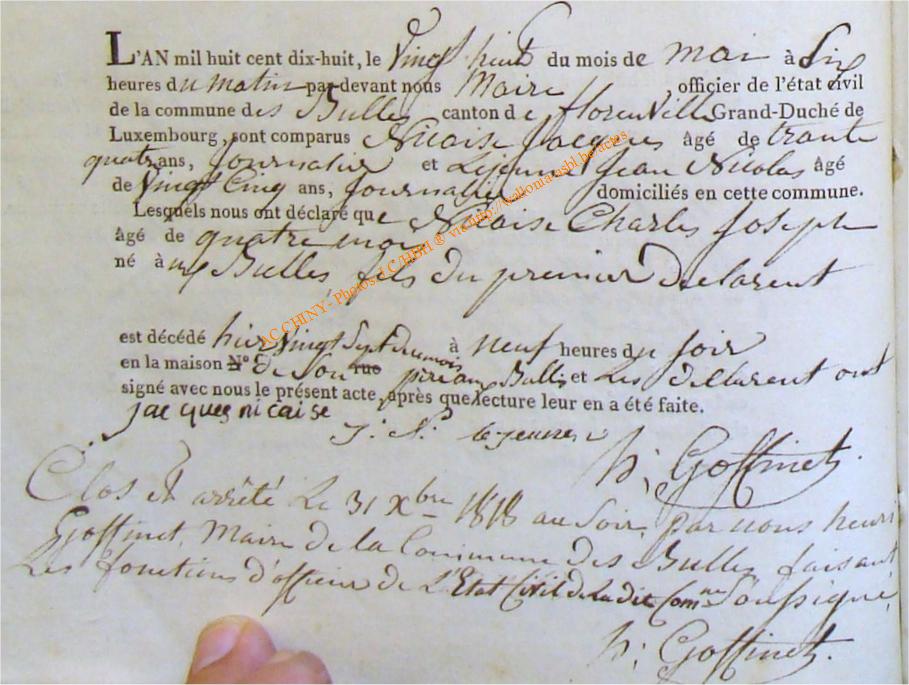 L'AN mil huit cent dix-huit, le Vingt huit du mois de mai à Six
heures du matin par devant nous Maire officier de l'état civil
de la commune des Bulles canton de florenville Grand-Duché de
Luxembourg, sont comparus Nicaise Jacques âgé de trante
quatre ans, journalier et Lejeune Jean Nicolas âgé
de Vingt Cinq ans, journalier domiciliés en cette commune.
Lesquels nous ont déclaré que Nicaise Charles Joseph
âgé de quatre mois
né à Bulles, fils du premier declarent
AC CHINY- Photos
est décédé hier Vingt Sept du mois à neuf heures du soir
en la maison N° de Son rue père aux Bulles et Les declarent ont
signé avec nous le présent acte, après que lecture leur en a été faite.
jacques nicaise
J: N: lejeune
h; Goffinet.
Clos et arrêté Le 31 Xbre 1818 au Soir, par nous henri
Goffinet, Maire de la Commune des Bulles faisant
Les fonctions d'officier de L'Etat Civil de La dite Comne Soussigné,
h; Goffinet.